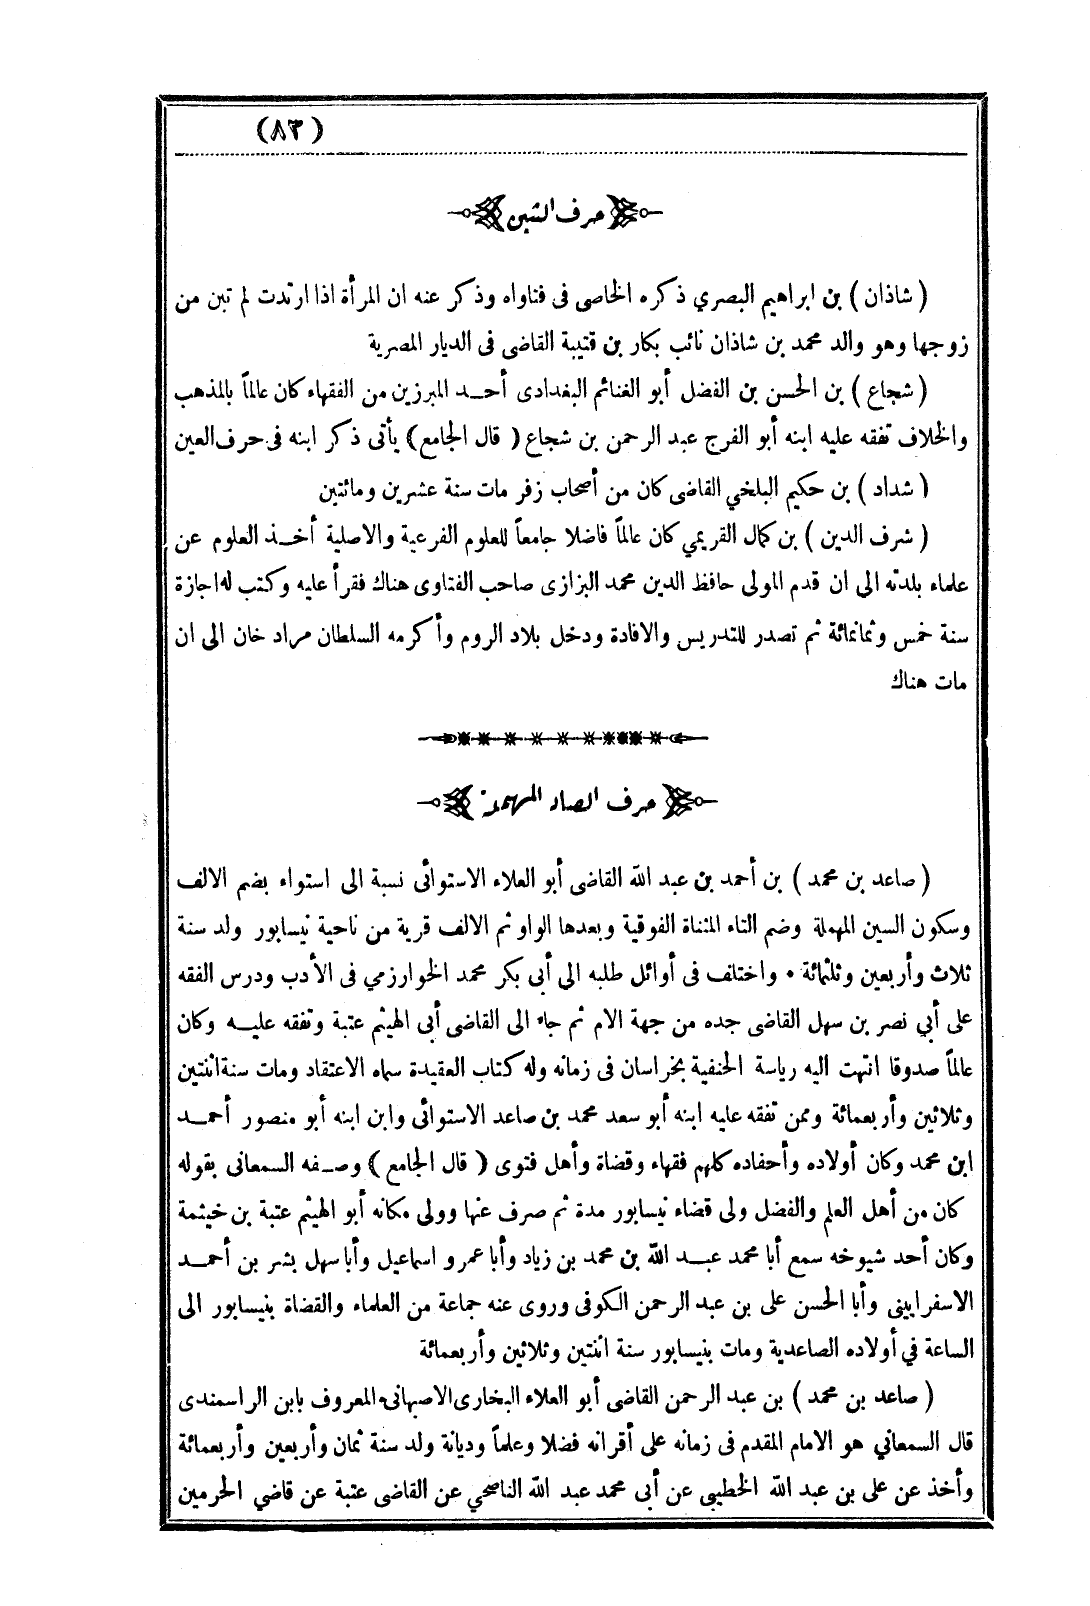 (٨٣)
حرف الشين
( شاذان ) بن ابراهيم البصري ذكره الخاصى فى فتاواه وذكر عنه ان المرأة اذا ارتدت لم تبن من
زوجها وهو والد محمد بن شاذان نائب بكار بن قتيبة القاضى فى الديار المصرية
( شجاع ) بن الحسن بن الفضل أبو الغنائم البغدادى أحد المبرزين من الفقهاء كان عالماً بالمذهب
والخلاف تفقه عليه ابنه أبو الفرج عبد الرحمن بن شجاع ( قال الجامع ) يأتى ذكر ابنه فى حرف العين
( شداد ) بن حكيم البلخي القاضى كان من أصحاب زفر مات سنة عشرين ومائتين
( شرف الدين ) بن كمال القريمي كان عالماً فاضلا جامعاً للعلوم الفرعية والاصلية أخذ العلوم عن
علماء بلدته الى ان قدم المولى حافظ الدين محمد البزازى صاحب الفتاوى هناك فقرأ عليه وكتب له اجازة
سنة خمس وثمانمائة ثم تصدر للتدريس والافادة ودخل بلاد الروم وأكرمه السلطان مراد خان الى ان
مات هناك
حرف الصاد المهملة
( صاعد بن محمد ) بن أحمد بن عبد الله القاضى أبو العلاء الاستوائى نسبة الى استواء بضم الالف
وسكون السين المهملة وضم التاء المثناة الفوقية وبعدها الواو ثم الالف قرية من ناحية نيسابور ولد سنة
ثلاث وأربعين وثلثمائة • واختلف فى أوائل طلبه الى أبى بكر محمد الخوارزمي فى الأدب ودرس الفقه
على أبي نصر بن سهل القاضى جده من جهة الام ثم جاء الى القاضى أبى الهيثم عتبة وتفقه عليه وكان
عالماً صدوقا انتهت اليه رياسة الحنفية بخراسان فى زمانه وله كتاب العقيدة سماه الاعتقاد ومات سنة اثنتين
وثلاثين وأربعمائة وممن تفقه عليه ابنه أبو سعد محمد بن صاعد الاستوائى وابن ابنه أبو منصور أحمد
ابن محمد وكان أولاده وأحفاده كلهم فقهاء وقضاة وأهل فتوى ( قال الجامع ) وصفه السمعانى بقوله
كان من أهل العلم والفضل ولى قضاء نيسابور مدة ثم صرف عنها وولى مكانه أبو الهيثم عتبة بن خيثمة
وكان أحد شيوخه سمع أبا محمد عبد الله بن محمد بن زياد وأبا عمرو اسماعيل وأبا سهل بشر بن أحمد
الاسفراييني وأبا الحسن على بن عبد الرحمن الكوفى وروى عنه جماعة من العلماء والقضاة بنيسابور الى
الساعة في أولاده الصاعدية ومات بنيسابور سنة اثنتين وثلاثين وأربعمائة
( صاعد بن محمد ) بن عبد الرحمن القاضى أبو العلاء البخارى الاصبهانى المعروف بابن الراسمندى
قال السمعاني هو الامام المقدم فى زمانه على أقرانه فضلا وعلماً وديانة ولد سنة ثمان وأربعين وأربعمائة
وأخذ عن على بن عبد الله الخطيبى عن أبى محمد عبد الله الناصحي عن القاضى عتبة عن قاضي الحرمين